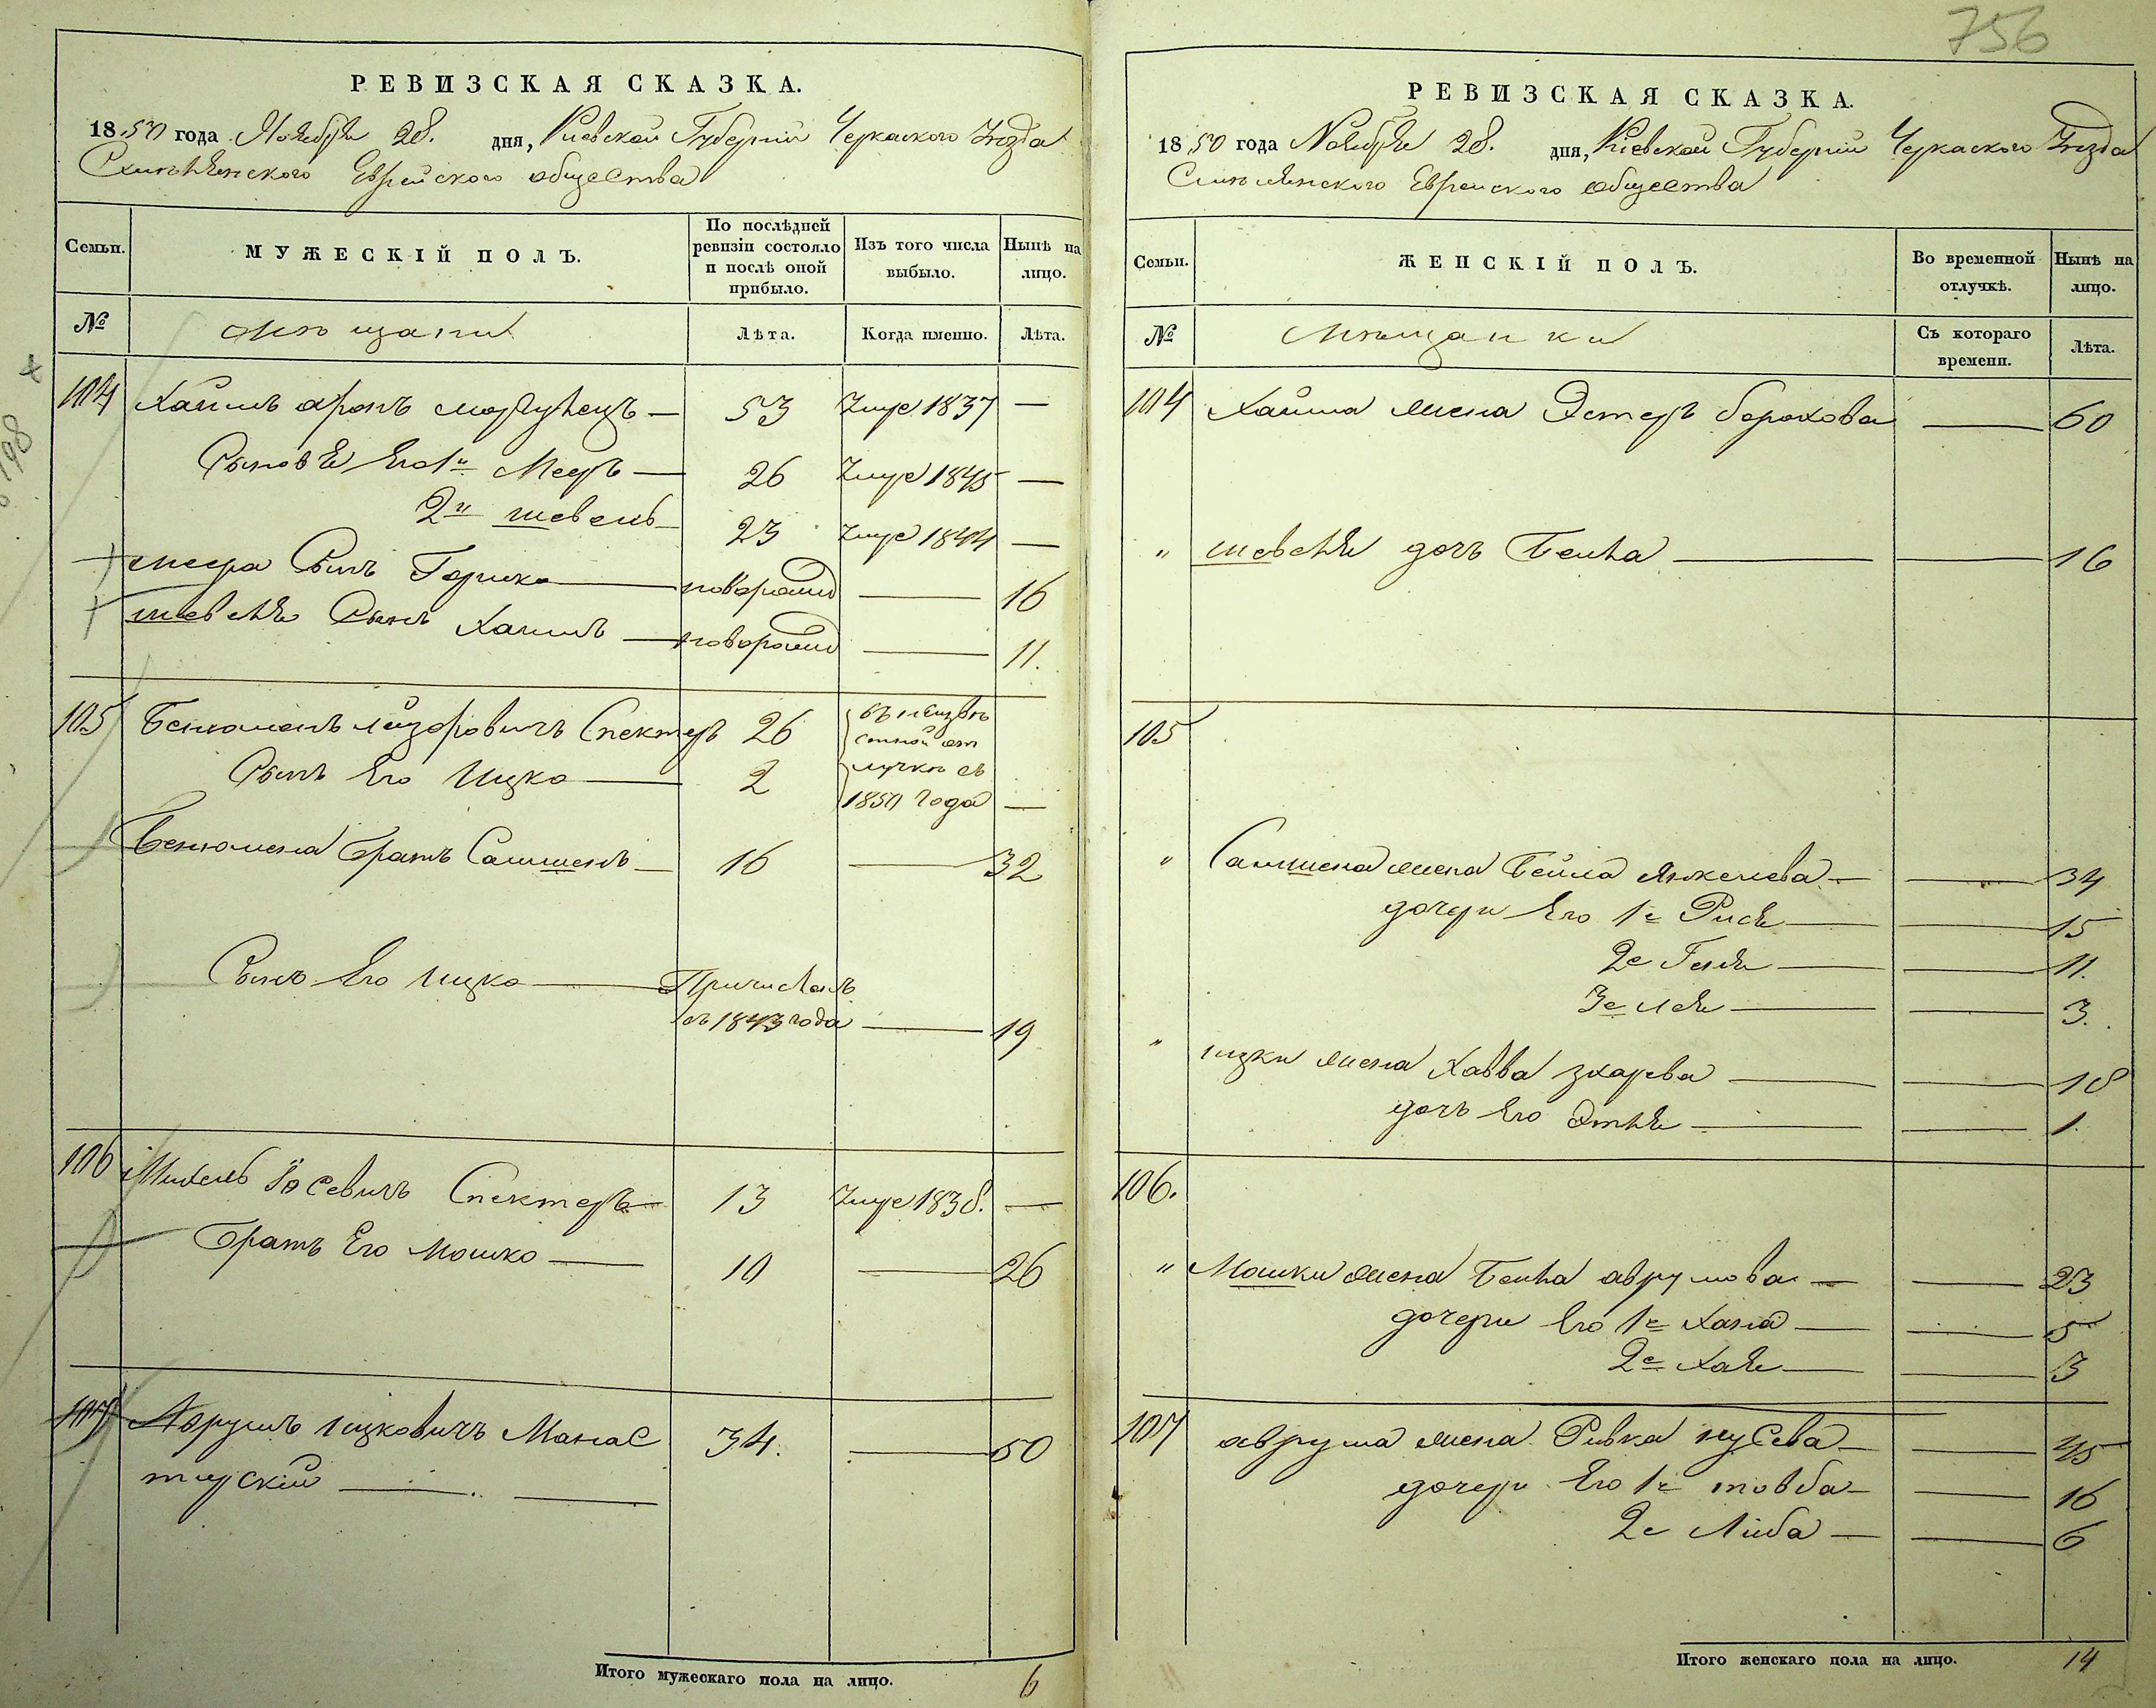 756
РЕВИЗСКАЯ СКАЗКА.
1850 года Ноября 28. дня, Киевской Губернии Черкаского Уезда
Еврейского общества
Семьи. МУЖЕСКІЙ ПОЛЪ. По послѣдней ревизіи состояло и послѣ оной прибыло. Изъ того числа выбыло. Нынѣ на лицо.
№ мещани Лѣта. Когда именно. Лѣта.
104 Хаимъ аронъ 53 Умре 1837 —
Сыновя Его 1й Меръ — 26 Умре 1845 —
2й шевель — 23 Умре 1844 —
меера Сынъ Гершко — новорожд — 16
шевеля Сынъ Хаимъ — новорожд — 11.
105 Бенюменъ лейзоровичъ Спектеръ 26 въ неизвѣ
стной от
Сынъ Его Ицко — 2 лучкѣ съ
1850 года —
Бенюмена братъ Самшенъ — 16 — 32
Сынъ Его Ицко — Причисленъ
съ 1843 года — 19
106 Михель Іосевичъ Спектеръ 13 Умре 1838. —
братъ Его Мошко — 10 — 26
107 Аврумъ ицковичъ Манас
тирскій — 34. — 50
Итого мужескаго пола на лицо. 6
РЕВИЗСКАЯ СКАЗКА.
1850 года Ноября 28. дня, Кіевской Губерніи Черкаского Уезда
Еврейского общества
Семьи. ЖЕНСКІЙ ПОЛЪ. Во временной отлучкѣ. Нынѣ на лицо.
№ мещанки Съ котораго времени. Лѣта.
104 Хаима жена Эстеръ борохова — 60
" шевеля дочъ Бейла — 16
105
" Самшена жена Бейла Янкелева — 34
дочери Его 1я Рися — 15
2я Геня — 11.
3я лея — 3.
" ицки жена Хавва — 18
дочъ Его Этля — 1.
106.
" Мошки жена Бейла аврумова — 23
дочери Его 1я Хана — 5
2я Хая — 3
107 аврума жена Ривка — 45
дочери Его 1я товба — 16
2я Либа — 6
Итого женскаго пола на лицо. 14